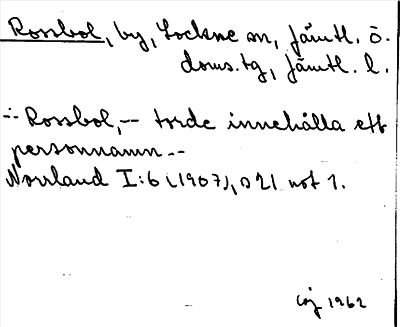 Rossbol, by, Lockne sn, Jämtl. ö.
doms.tg, Jämtl. l.
-:- Rossbol, -- torde innehålla ett
personnamn. --
Norrland I:6 (1907), s 21 not 1.
1962